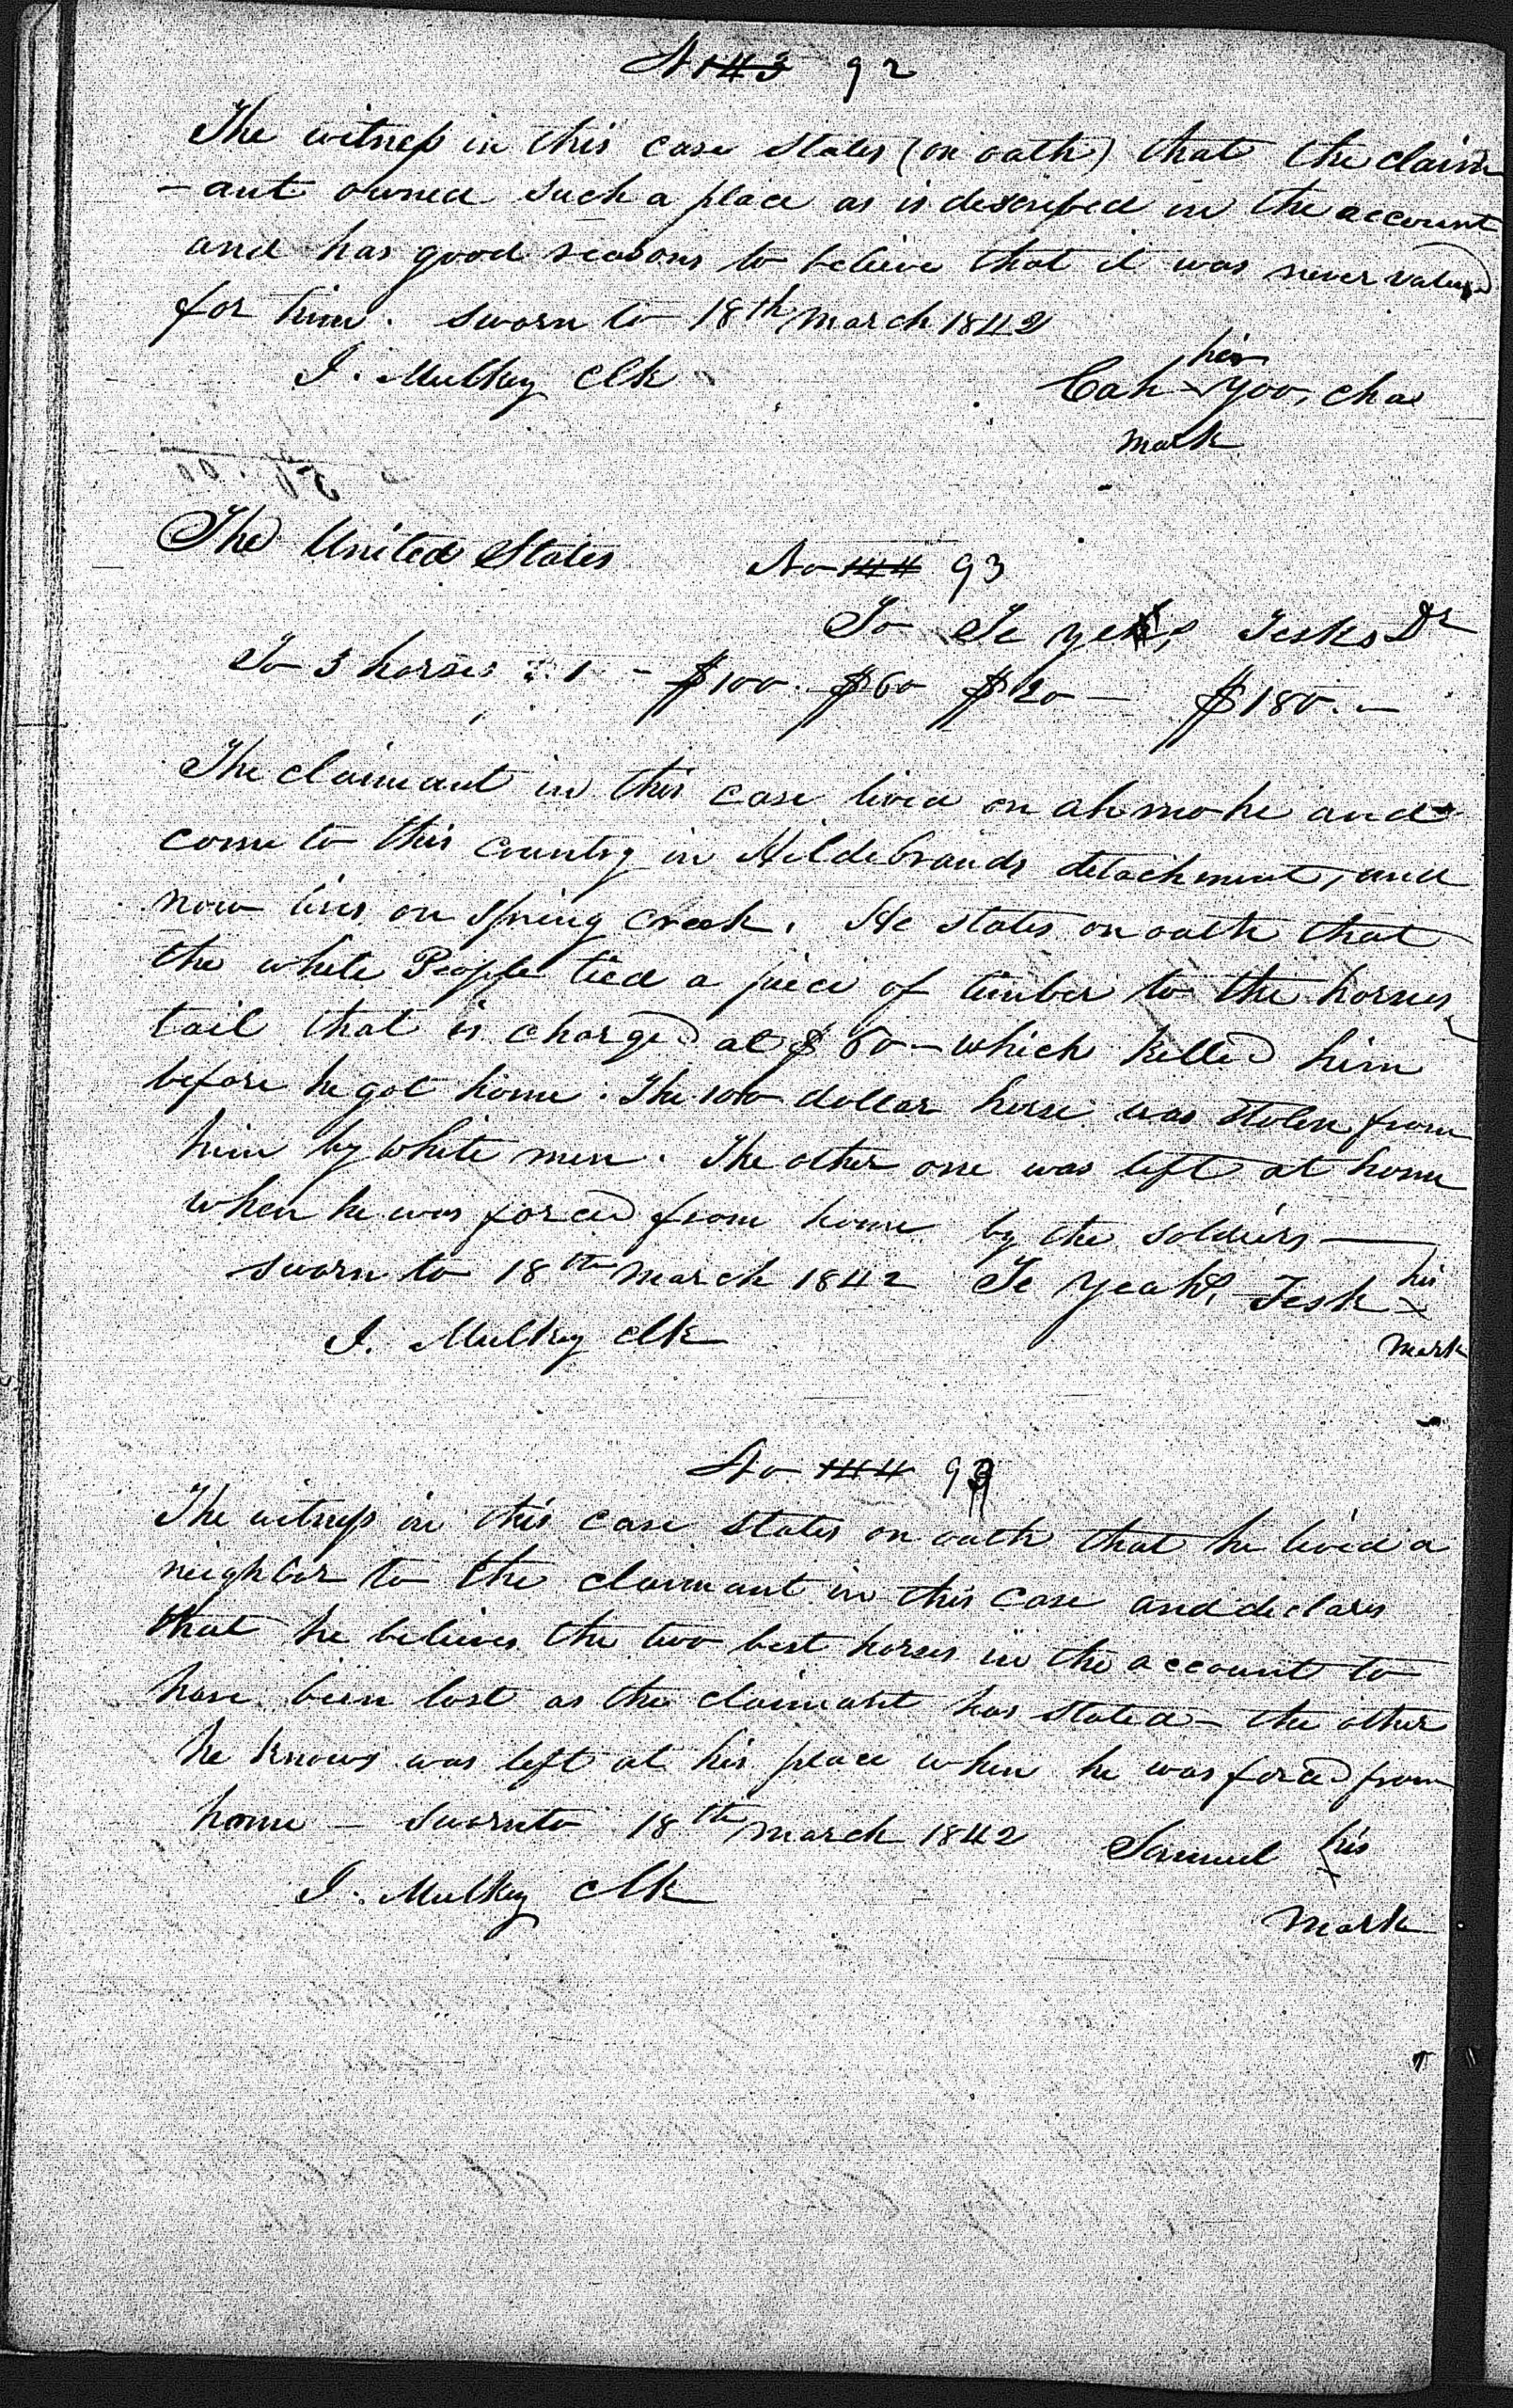 No 143 92
The witness in this case states (on oath) that the claim
-ant owned such a place as is described in the account
and has good reasons to believe that it was never valued
for him. sworn to 18th march 1842
his
J. Mulkey Clk
Cah x yoo, cha
mark
The United States No 144 93
To Te yeah, Tesks Dr
To 3 horses 1 - $100. $60 $20 - $180.-
The claimant in this case lived on ahmohe and
come to this country in Hildebrands detachment, and
now lives on Spring creek. He states on oath that
the white People tied a piece of timber to the horses
tail that is charged at $60 - which killed him
before he got home. The 100 dollar horse was stolen from
him by white men. The other one was left at home
when he was forced from home by the soldiers —
sworn to 18th march 1842 Te yeah, Tesk his x
J. Mulkey clk
mark
No 144 93
The witness in this case states on oath that he lived a
neighbor to the claimant in this case and declares
that he believes the two best horses in the account to
have been lost as the claimant has stated - the other
he knows was left at his place when he was forced from
home - sworn to 18th march 1842 Samuel his x
J. Mulkey clk
mark